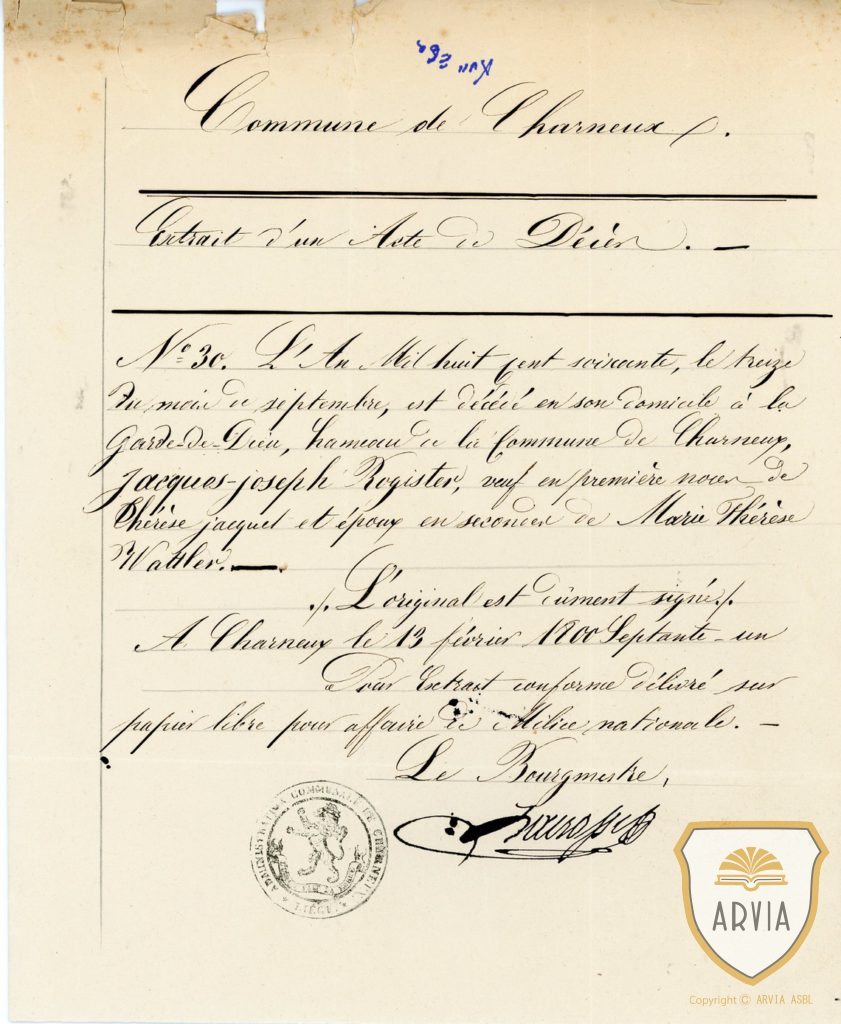 Commune de Charneux.
Extrait d'un Acte de Décès. —
N° 30. L'An Mil huit cent soixante, le treize
du mois de septembre, est décédé en son domicile à la
Garde-de-Dieu, hameau de la Commune de Charneux,
Jacques-joseph Rogister, veuf en première noces de
Thérèse jacquet et époux en secondes de Marie Thérèse
Wattler. —
./. L'original est dûment signé ./.
A Charneux le 13 février 1800 Septante-un
Pour Extrait conforme délivré sur
papier libre pour affaire de Milice nationale. —
Le Bourgmestre,
ADMINISTRATION COMMUNALE DE CHARNEUX
LIÉGE
ARVIA
Copyright © ARVIA ASBL